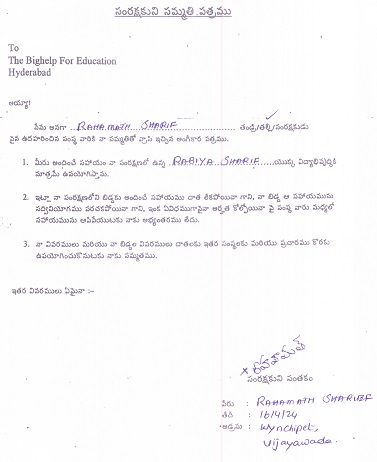 సంరక్షకుని సమ్మతి పత్రము
To
The Bighelp For Education
Hyderabad
అయ్యా!
నేను అనగా RAHAMATH SHARIF తండ్రి/తల్లి/సంరక్షకుడు
పైన ఉదహరించిన సంస్థ వారికి నా సమ్మతితో వ్రాసి ఇచ్చిన అంగీకార పత్రము.
1. మీరు అందించే సహాయం నా సంరక్షణలో ఉన్న RABIYA SHARIF యొక్క విద్యాభివృద్ధికి
మాత్రమే ఉపయోగిస్తాము.
2. ఇట్లా నా సంరక్షణలోని బిడ్డకు అందించే సహాయము దాత లేకపోయినా గాని, నా బిడ్డ ఆ సహాయమును
సద్వినియోగము పరచకపోయినా గాని, ఇంక ఏవిధముగానైనా అర్హత కోల్పోయినా పై సంస్థ వారు మధ్యలో
సహాయమును ఆపివేయుటకు నాకు అభ్యంతరము లేదు.
3. నా వివరములు మరియు నా బిడ్డల వివరములు దాతలకు ఇతర సంస్థలకు మరియు ప్రచారము కొరకు
ఉపయోగించుకొనుటకు నాకు సమ్మతము.
ఇతర వివరములు ఏమైనా :-
x రహమత్
సంరక్షకుని సంతకం
పేరు : RAHAMATH SHARIEF
తేది : 16/4/24
అడ్రసు : Wynchipet,
Vijayawada.